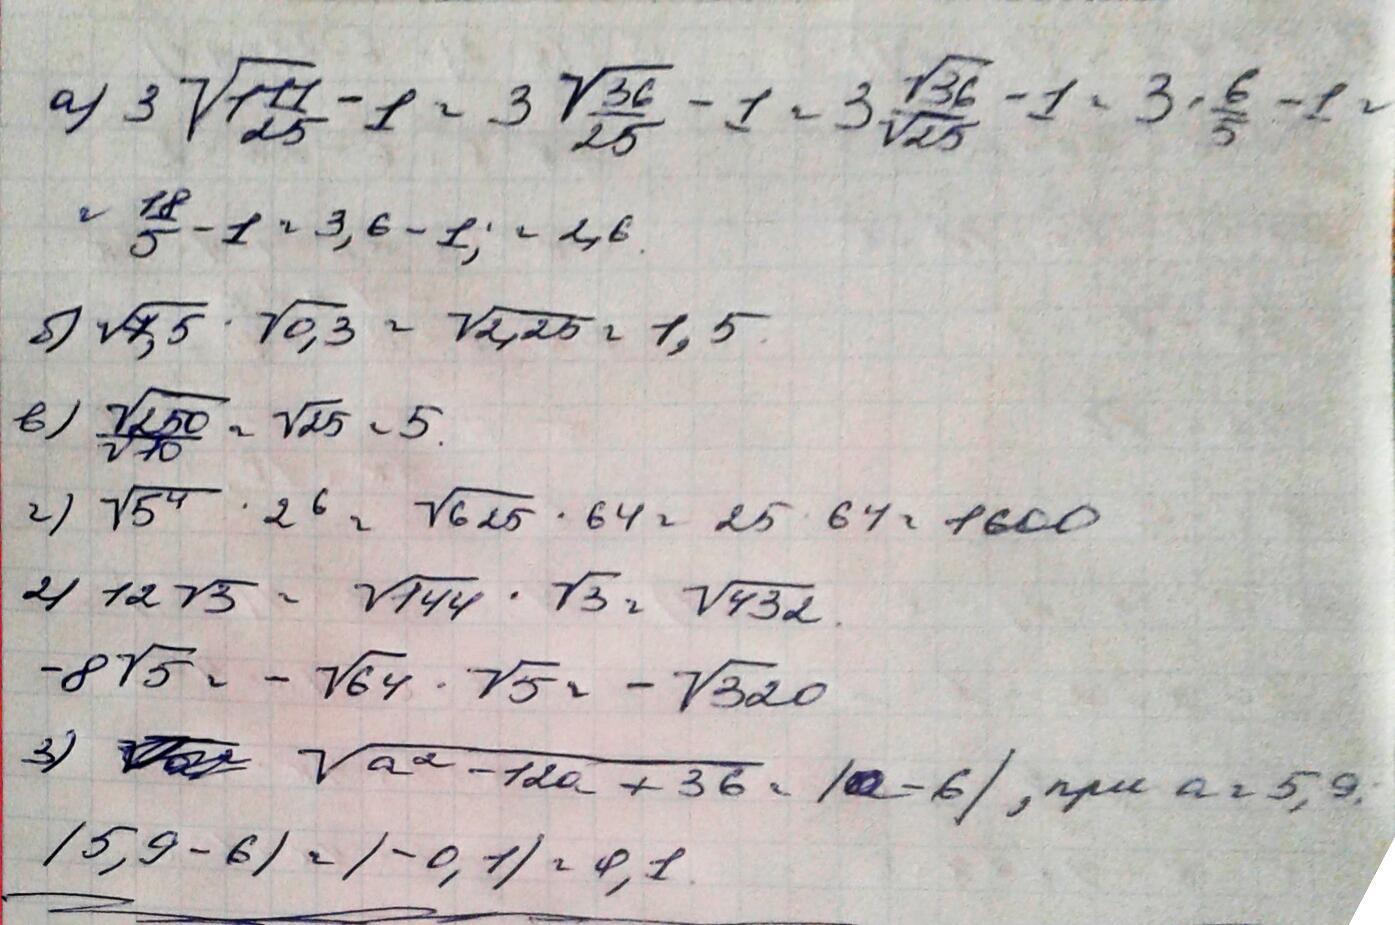 а) 3√(1 11/25) - 1 = 3√(36/25) - 1 = 3 √36/√25 - 1 = 3 · 6/5 - 1 =
= 18/5 - 1 = 3,6 - 1; = 2,6.
б) √7,5 · √0,3 = √2,25 = 1,5.
в) √250/√10 = √25 = 5.
г) √5⁴ · 2⁶ = √625 · 64 = 25 · 64 = 1600
2) 12√3 = √144 · √3 = √432.
-8√5 = -√64 · √5 = -√320
3) √(a² - 12a + 36) = |a - 6|, при a = 5,9.
|5,9 - 6| = |-0,1| = 0,1.